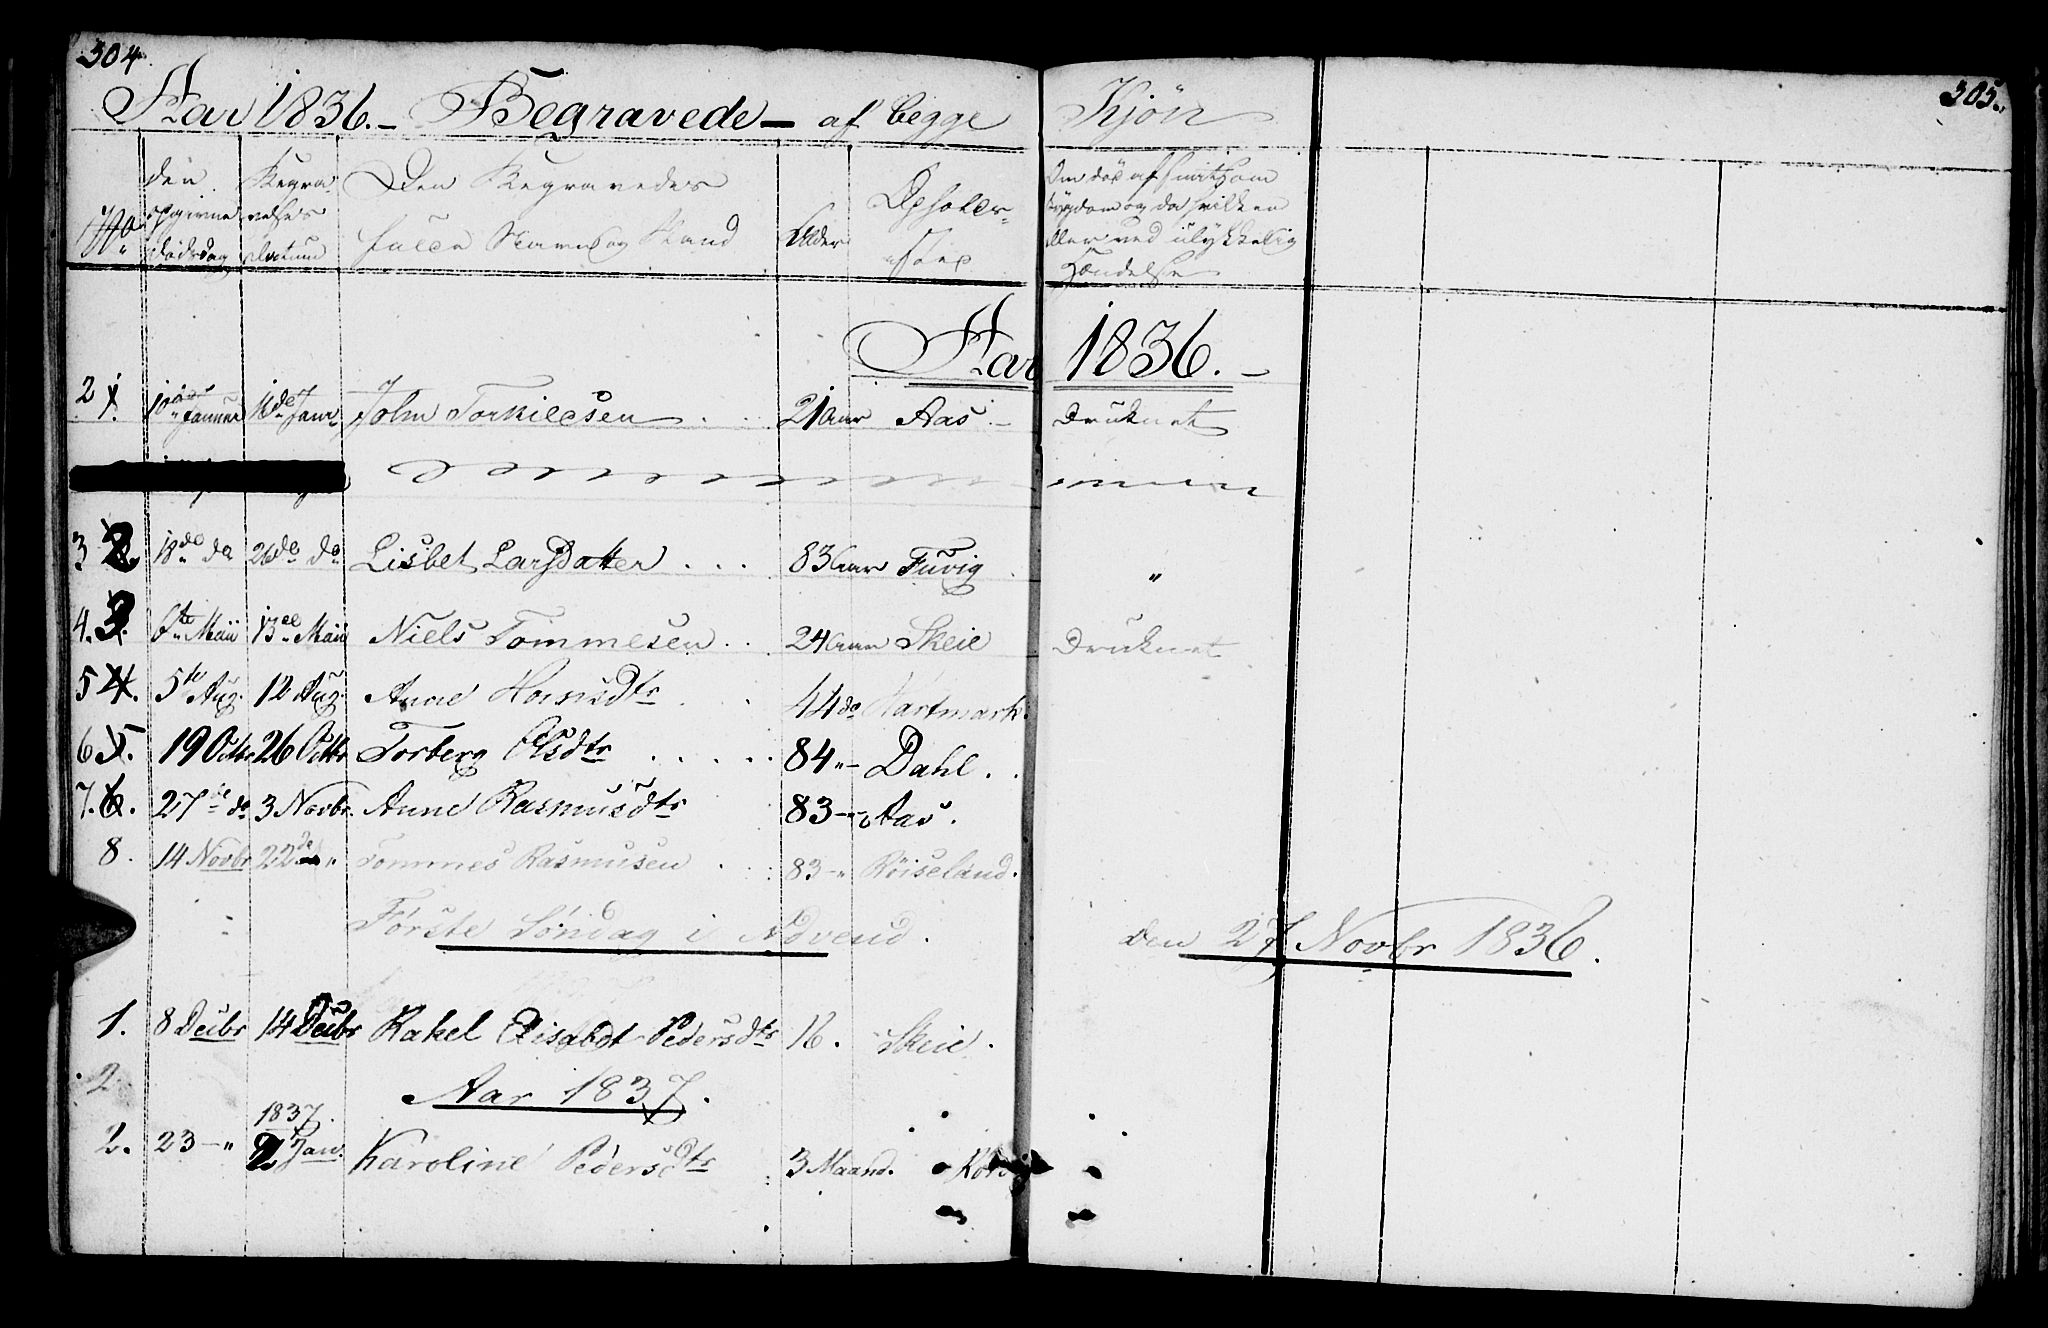 304 305.
Aar 1836. – Begravede – af begge Kjøn
No den opgivne Dødsdag Begravelses Datum Den Begravedes fulde Navn og Stand Alder Opholdssted Om død af smitsom Sygdom og da hvilken eller ved ulykkelig Hændelse
Aar 1836. –
2 1. 10de Januar 16de Janr John Torkilesen . . 21 Aar Aas. – Druknet
3 2. 18de do 26de do Lisbet Larsdatter . . . 83 Aar Tuvig . "
4. 3. 6te Maii 13de Maii Niels Tommesen . . 24 Aar Skeie Druknet
5 4. 5te Aug. 12 Aug. Anne Hansdtr . . 44 do Hartmark.
6 5. 19 Octbr 26 Octbr Torberg Olsdtr . . . . . 84 " – Dahl . .
7. 6. 27de do 3 Novbr. Anne Rasmusdtr 83 – " Aas.
8. 14 Novbr 22de " Tommes Rasmusen . . 83 – " Røiseland.
Første Søndag i Advend. den 27 Novbr 1836.
1. 8 Decbr 14 Decbr Rakel Elisabet Pedersdtr 16. Skeie.
2
Aar 1837.
1837.
2. 23 – " 2 Jan. Karoline Pedersdtr 3 Maand.